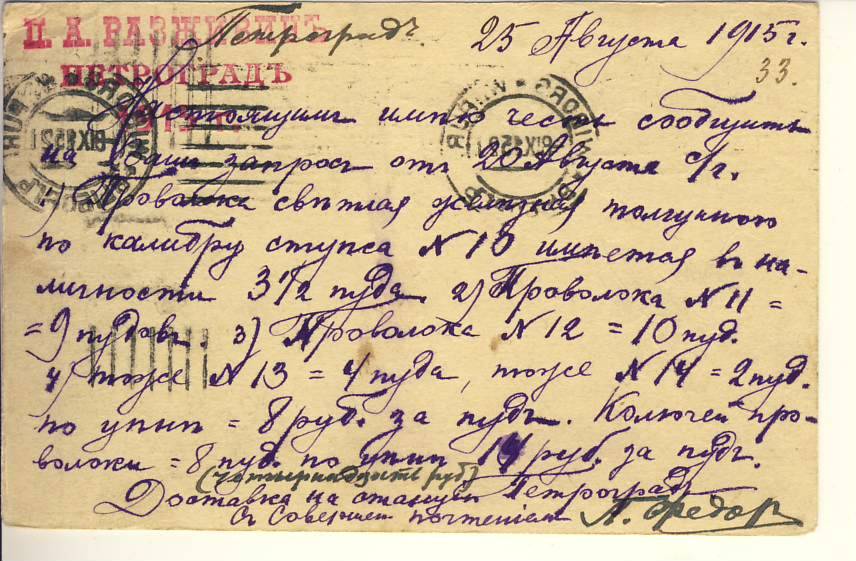 П. А. РАЗЖИВИНЪ
ПЕТРОГРАДЪ
Петроградъ. 25 Августа 1915 г.
33.
Настоящимъ имѣю честь сообщить
на Вашъ запросъ отъ 20 Августа с/г.
1) Проволока свѣтлая желѣзная толщиною
по калибру ступса N 10 имѣется въ на-
личности 3 1/2 пуда. 2) Проволока N 11 =
= 9 пудовъ. 3) Проволока N 12 = 10 пуд.
4) тоже N 13 = 4 пуда, тоже N 14 = 2 пуд.
по цѣнѣ = 8 руб. за пудъ. Колючей про-
волоки = 8 пуд. по цѣнѣ 14 руб. за пудъ.
(четырнадцать руб)
Доставка на станцiю Петроградъ
Съ Совершен почтенiем П. Федор